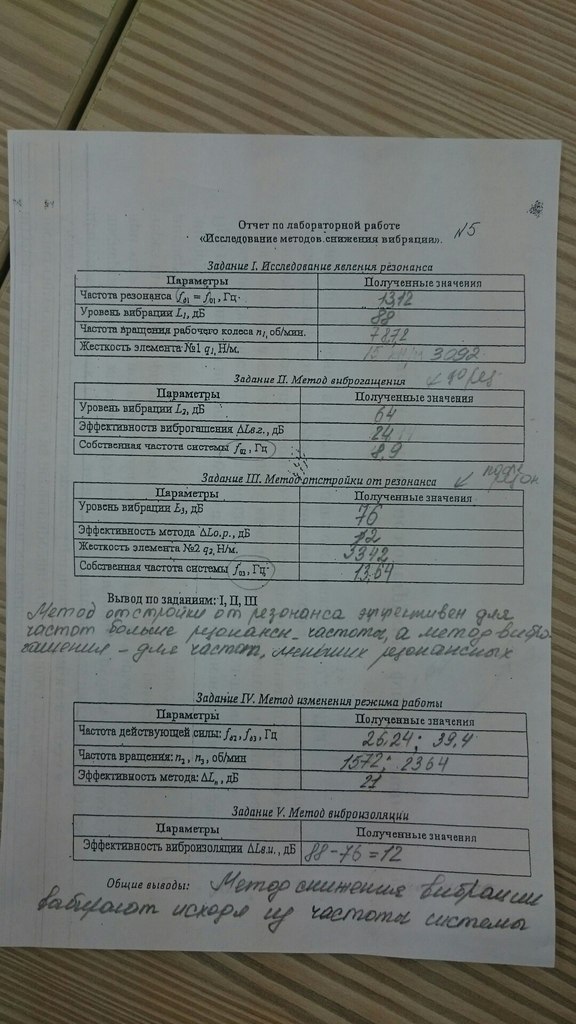 Отчет по лабораторной работе
«Исследование методов снижения вибрации». №5
Задание I. Исследование явления резонанса
Параметры Полученные значения
Частота резонанса (f₀₁ = f₀₁, Гц. 13,12
Уровень вибрации L₁, дБ 88
Частота вращения рабочего колеса n₁, об/мин. 787,2
Жесткость элемента №1 q₁, Н/м. 3092
Задание II. Метод виброгашения ↙ до рез
Параметры Полученные значения
Уровень вибрации L₂, дБ 64
Эффективность виброгашения ΔLв.г., дБ 24
Собственная частота системы f₀₂, Гц 8,9
Задание III. Метод отстройки от резонанса ↙
Параметры Полученные значения
Уровень вибрации L₃, дБ 76
Эффективность метода ΔLо.р., дБ 12
Жесткость элемента №2 q₂, Н/м. 3342
Собственная частота системы f₀₃, Гц. 13,64
Вывод по заданиям: I, II, III
Метод отстройки от резонанса эффективен для
частот больше резонансн. частоты, а метод вибро-
гашения – для частот, меньших резонансных
Задание IV. Метод изменения режима работы
Параметры Полученные значения
Частота действующей силы: f₀₂, f₀₃, Гц 26,24; 39,4
Частота вращения: n₂, n₃, об/мин 1572; 2364
Эффективность метода: ΔLₙ, дБ 21
Задание V. Метод виброизоляции
Параметры Полученные значения
Эффективность виброизоляции ΔLв.и., дБ 88-76=12
Общие выводы: Метод снижения вибрации
выбирают исходя из частоты системы